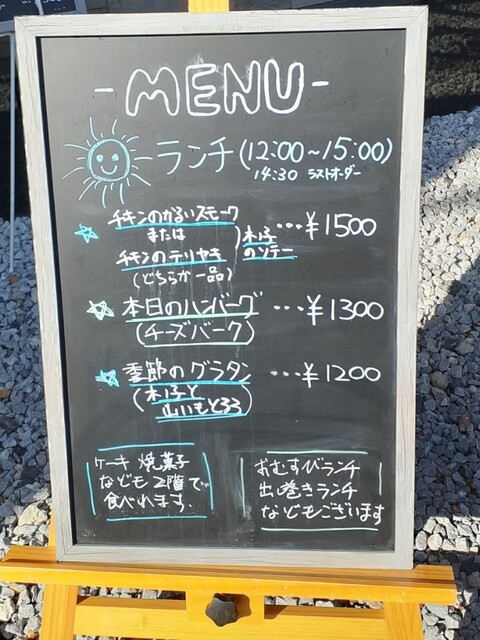 -MENU-
ランチ(12:00~15:00)
14:30 ラストオーダー
チキンのかるいスモーク
または
チキンのテリヤキ
(どちらか一品)
木の子
のソテー
…¥1500
本日のハンバーグ …¥1300
(チーズバーク)
季節のグラタン …¥1200
(木の子と
山いもとろろ)
ケーキ 焼菓子
なども2階で
食べれます.
おむすびランチ
出し巻きランチ
などもございます